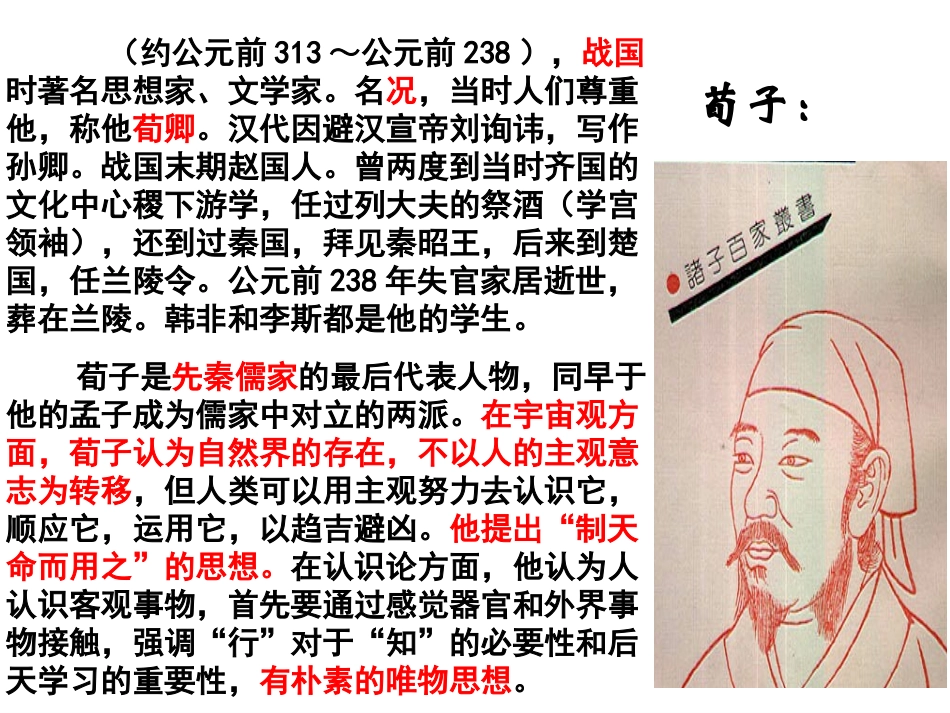 （约公元前 313 ～公元前 238 ），战国
时著名思想家、文学家。名况，当时人们尊重
他，称他荀卿。汉代因避汉宣帝刘询讳，写作
孙卿。战国末期赵国人。曾两度到当时齐国的
文化中心稷下游学，任过列大夫的祭酒（学宫
领袖），还到过秦国，拜见秦昭王，后来到楚
国，任兰陵令。公元前 238 年失官家居逝世，
葬在兰陵。韩非和李斯都是他的学生。
荀子是先秦儒家的最后代表人物，同早于
他的孟子成为儒家中对立的两派。在宇宙观方
面，荀子认为自然界的存在，不以人的主观意
志为转移，但人类可以用主观努力去认识它，
顺应它，运用它，以趋吉避凶。他提出“制天
命而用之”的思想。在认识论方面，他认为人
认识客观事物，首先要通过感觉器官和外界事
物接触，强调“行”对于“知”的必要性和后
天学习的重要性，有朴素的唯物思想。
荀子：
諸子百家叢書